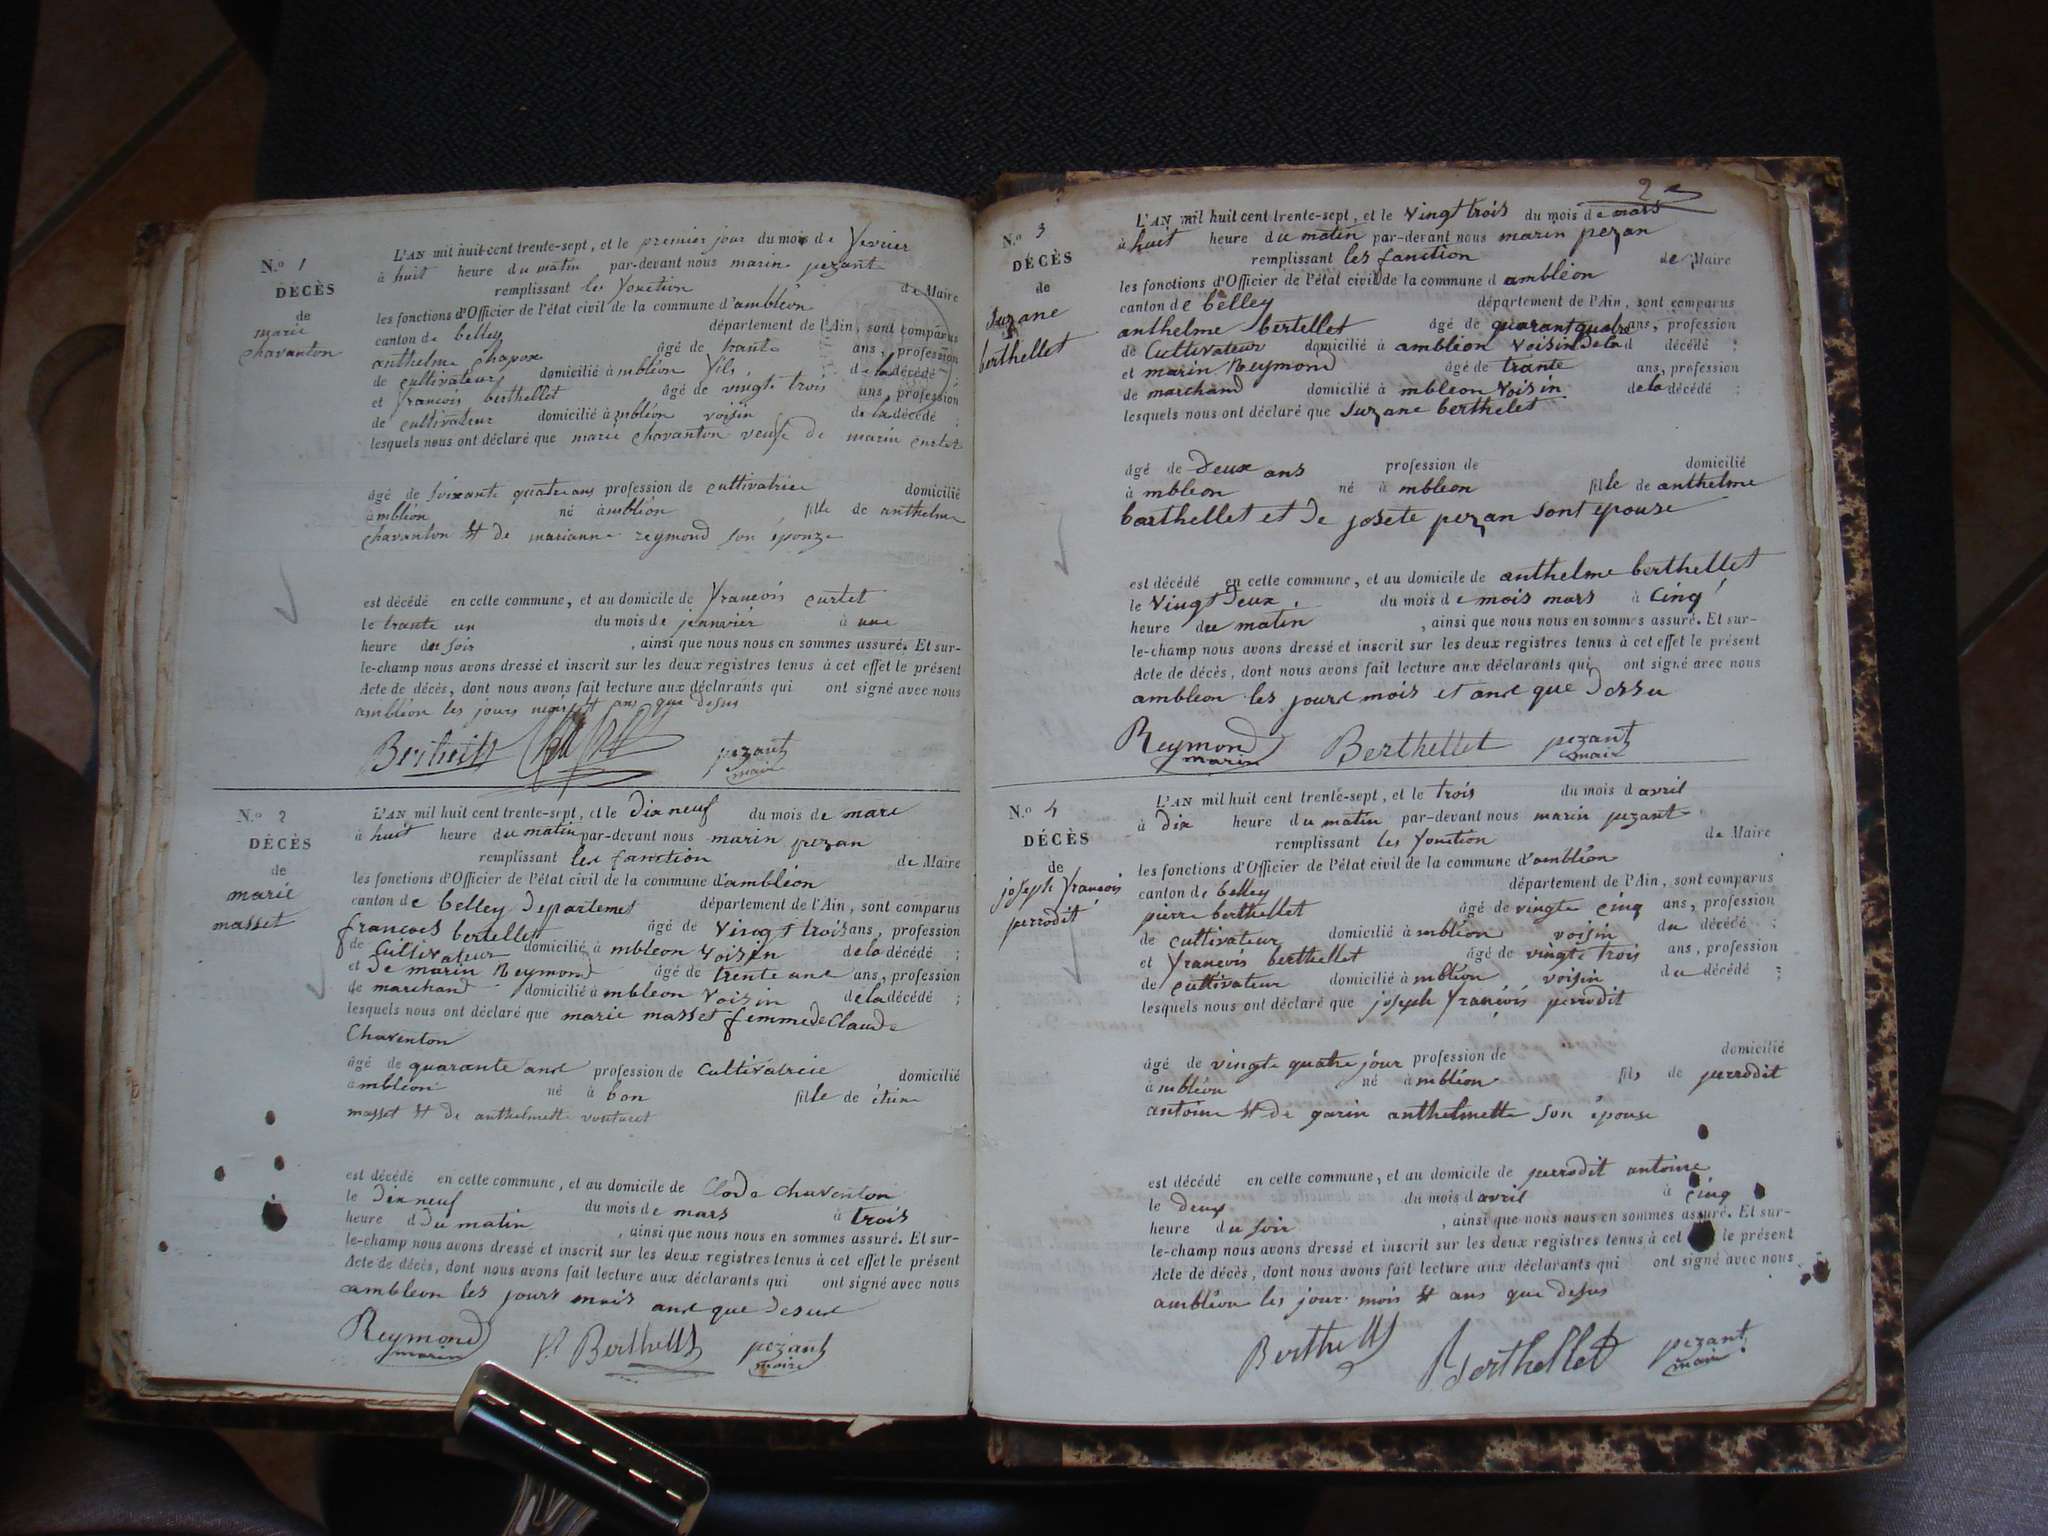 N.o 1
DÉCÈS
de
marie
chavanton
L'AN mil huit cent trente-sept, et le premier jour du mois de fevrier
à huit heure du matin par-devant nous marin pezant
remplissant les fonction de Maire
les fonctions d'Officier de l'état civil de la commune d'ambléon
canton de belley département de l'Ain, sont comparus
anthelme chapox âgé de trante ans, profession
de cultivateur domicilié à mbléon fils de la décédé
et francois berthellet âgé de vingte trois ans, profession
de cultivateur domicilié à mbléon voisin de la décédé ;
lesquels nous ont déclaré que marie chavanton veuse de marin curtet
âgé de soixante quatre ans profession de cultivatrice domicilié
à mbléon né à mbléon fille de anthelme
chavanton et de marianne reymond son éponze
est décédé en cette commune, et au domicile de francois curtet
le trante un du mois de jeanvier à une
heure du soir , ainsi que nous nous en sommes assuré. Et sur-
le-champ nous avons dressé et inscrit sur les deux registres tenus à cet effet le présent
Acte de décès, dont nous avons fait lecture aux déclarants qui ont signé avec nous
ambléon les jours mois et ans que desus
pezant
maire
N.o 2
DÉCÈS
de
marie
masset
L'AN mil huit cent trente-sept, et le Dix neuf du mois de marc
à huit heure du matin par-devant nous marin pezan
remplissant les fonction de Maire
les fonctions d'Officier de l'état civil de la commune d'ambléon
canton de belley Departemet département de l'Ain, sont comparus
francois bertellet âgé de Vingt trois ans, profession
de Cultivateur domicilié à mbleon Voisin de la décédé ;
et de marin Reymond âgé de trente une ans, profession
de marchand domicilié à mbleon Voisin de la décédé ;
lesquels nous ont déclaré que marie masset femme de Claude
Chaventon
âgé de quarante ans profession de Cultivatricie domicilié
à mbléon né à bon fille de étiene
masset et de anthelmett
est décédé en cette commune, et au domicile de Clode Chaventon
le Dix neuf du mois de mars à trois
heure d Du matin , ainsi que nous nous en sommes assuré. Et sur-
le-champ nous avons dressé et inscrit sur les deux registres tenus à cet effet le présent
Acte de décès, dont nous avons fait lecture aux déclarants qui ont signé avec nous
ambleon les jours mois ans que desus
Reymond Berthellet pezant
marin maire
2
N.o 3
DÉCÈS
de
Suzane
berthellet
L'AN mil huit cent trente-sept, et le Vingt trois du mois de mars
à huit heure du matin par-devant nous marin pezan
remplissant les fonction de Maire
les fonctions d'Officier de l'état civil de la commune d ambléon
canton de belley département de l'Ain, sont comparus
anthelme bertellet âgé de quarant quatre ans, profession
de Cultivateur domicilié à ambleon Voisin de la d décédé ;
et marin Reymond âgé de trante ans, profession
de marchand domicilié à mbleon Voisin de la décédé ;
lesquels nous ont déclaré que Suzane berthelet
âgé de Deux ans profession de domicilié
à mbleon né à mbleon fille de anthelme
barthellet et de josete pezan sont epouse
est décédé en cette commune, et au domicile de anthelme berthellet
le Vingt Deux du mois de mois mars à Cinq
heure du matin , ainsi que nous nous en sommes assuré. Et sur-
le-champ nous avons dressé et inscrit sur les deux registres tenus à cet effet le présent
Acte de décès, dont nous avons fait lecture aux déclarants qui ont signé avec nous
ambleon les jours mois et ans que Dessu
Reymond Berthellet pezant
marin maire
N.o 4
DÉCÈS
de
joseph francois
perrodit
L'AN mil huit cent trente-sept, et le trois du mois d avril
à Dix heure du matin par-devant nous marin pezant
remplissant les fonction de Maire
les fonctions d'Officier de l'état civil de la commune d'ambléon
canton de belley département de l'Ain, sont comparus
pierre berthellet âgé de vingte cinq ans, profession
de cultivateur domicilié à mbléon voisin du décédé ;
et francois berthellet âgé de vingte trois ans, profession
de cultivateur domicilié à mbléon voisin du décédé ;
lesquels nous ont déclaré que joseph francois perrodit
âgé de vingte quatre jour profession de domicilié
à mbléon né à mbléon fils de perrodit
antoine et de garin anthelmette son épouse
est décédé en cette commune, et au domicile de perrodit antoine
le deux du mois d avril à cinq
heure du soir , ainsi que nous nous en sommes assuré. Et sur-
le-champ nous avons dressé et inscrit sur les deux registres tenus à cet le présent
Acte de décès, dont nous avons fait lecture aux déclarants qui ont signé avec nous
ambléon les jour mois et ans que desus
Berthellet Berthellet pezant
maire